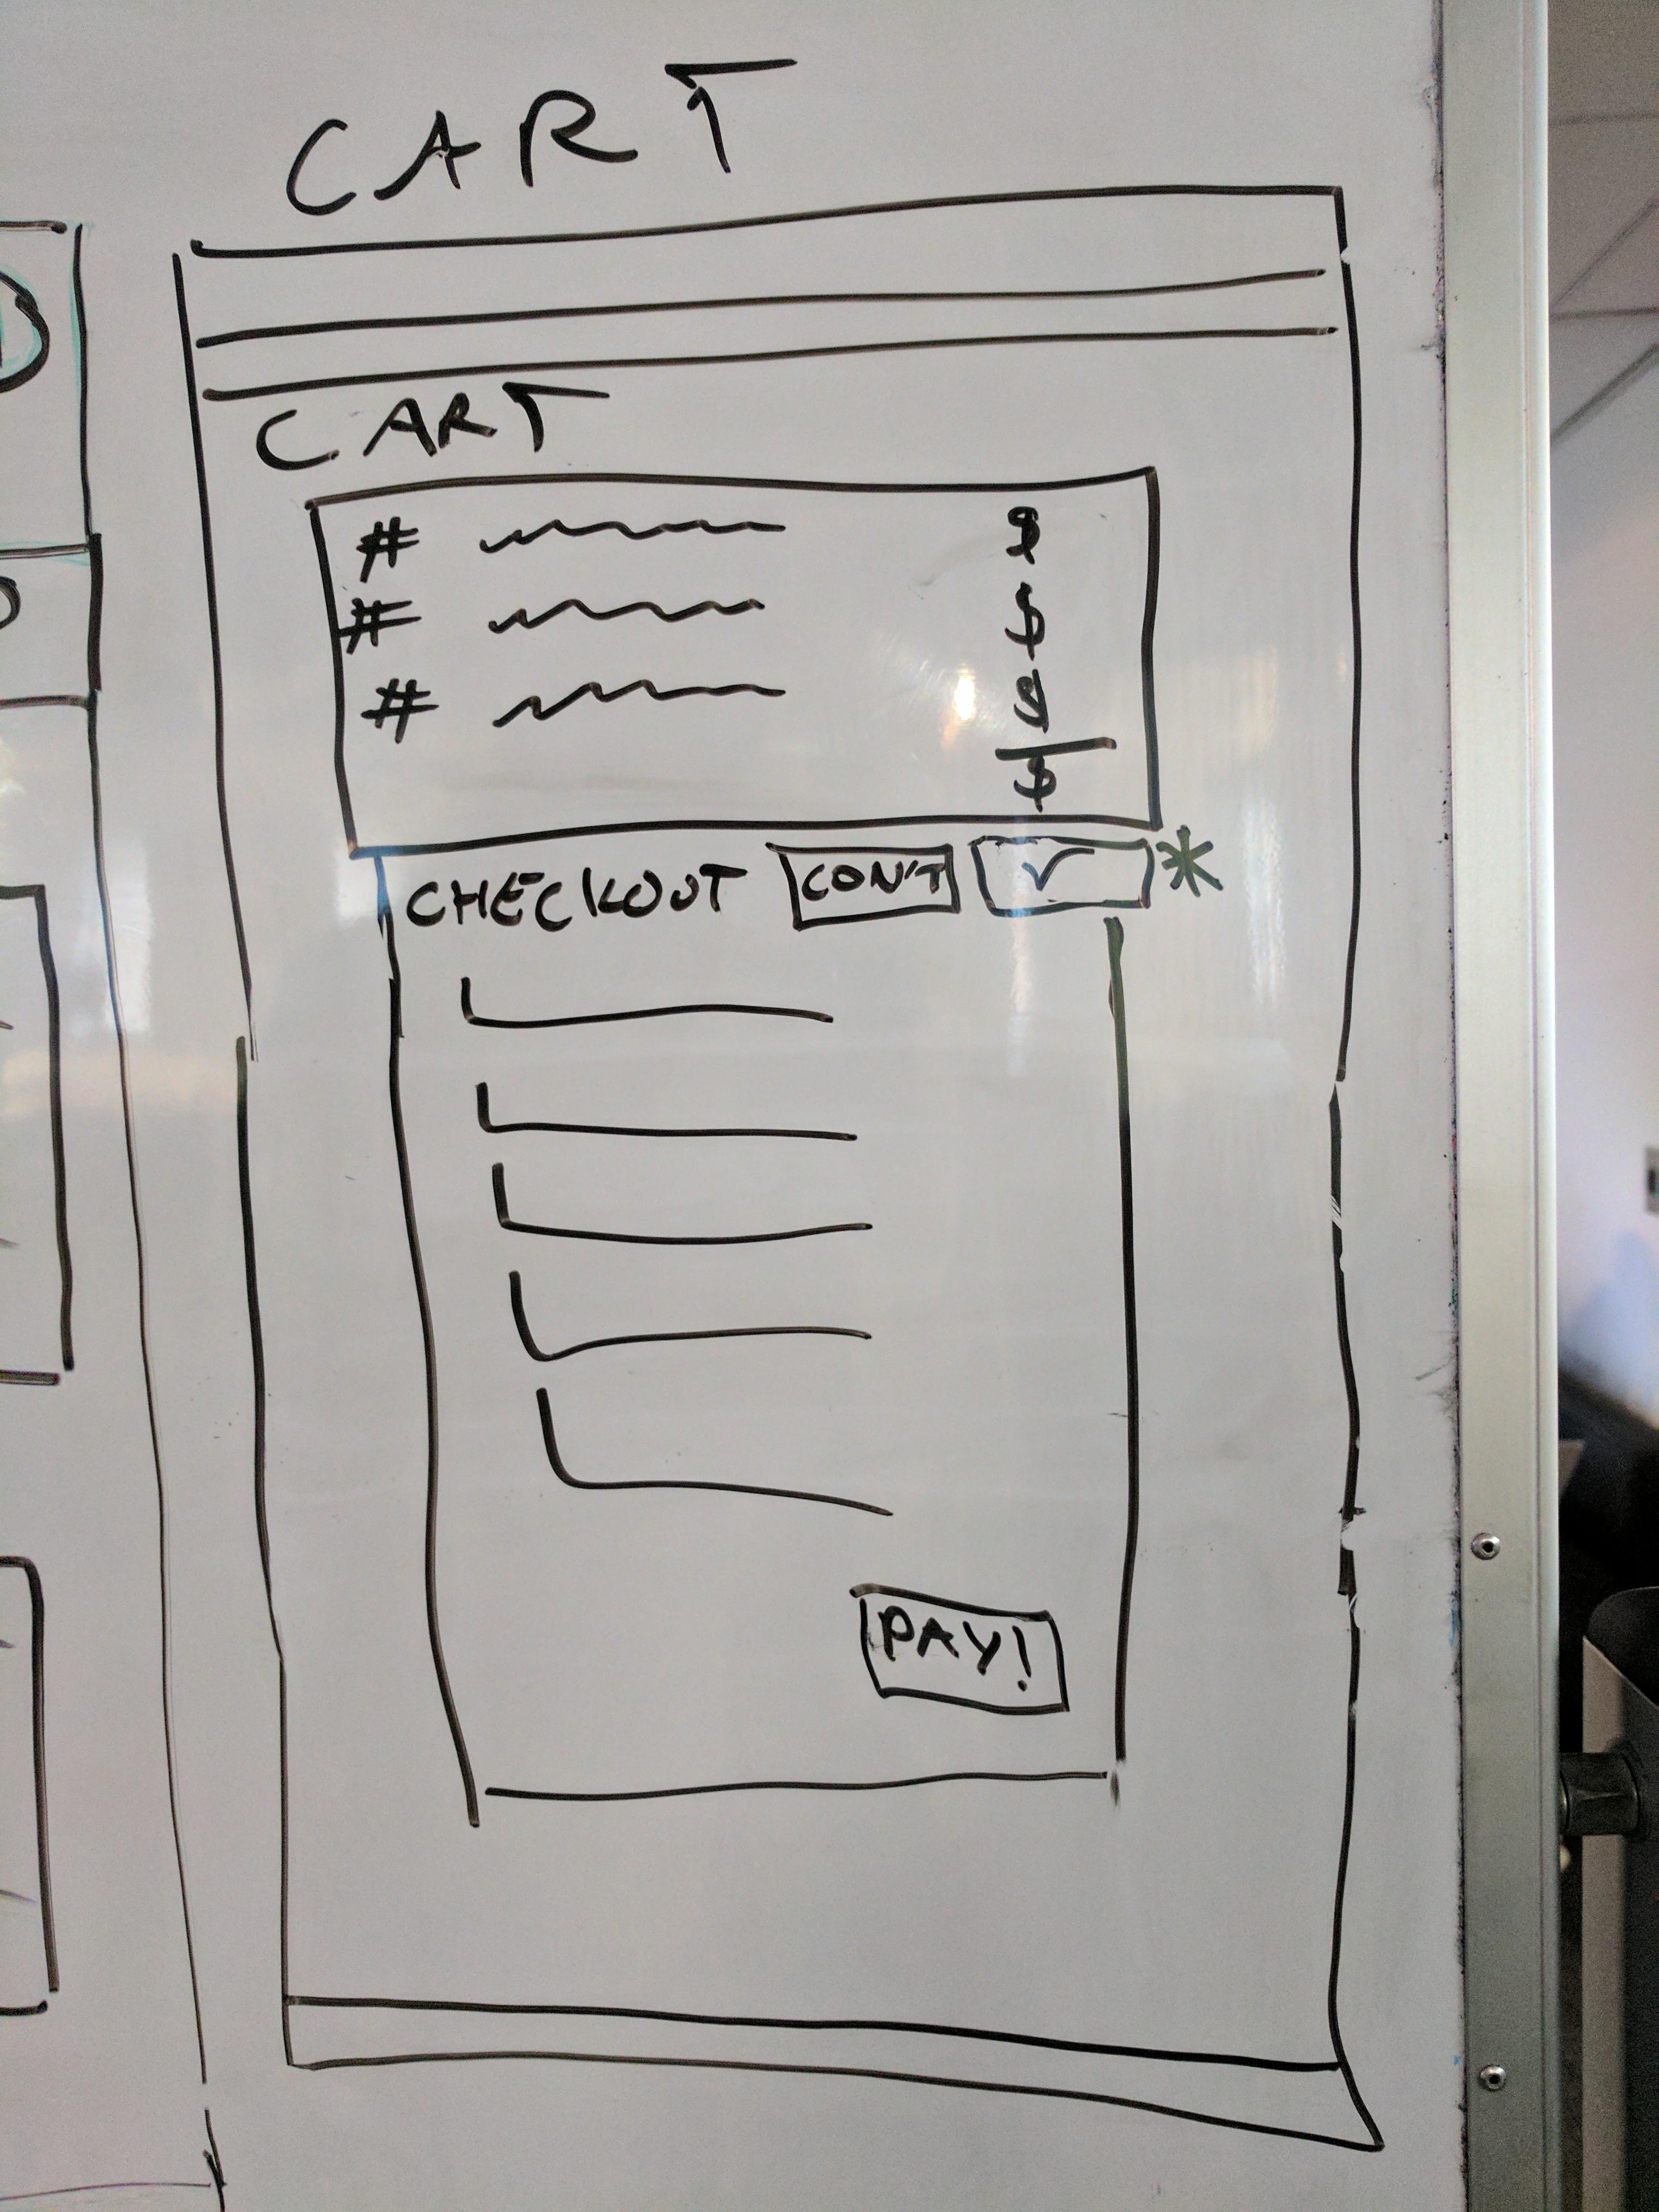 CART
CART
# $
# $
# $
$
CHECKOUT CON'T ✓ *
PAY!